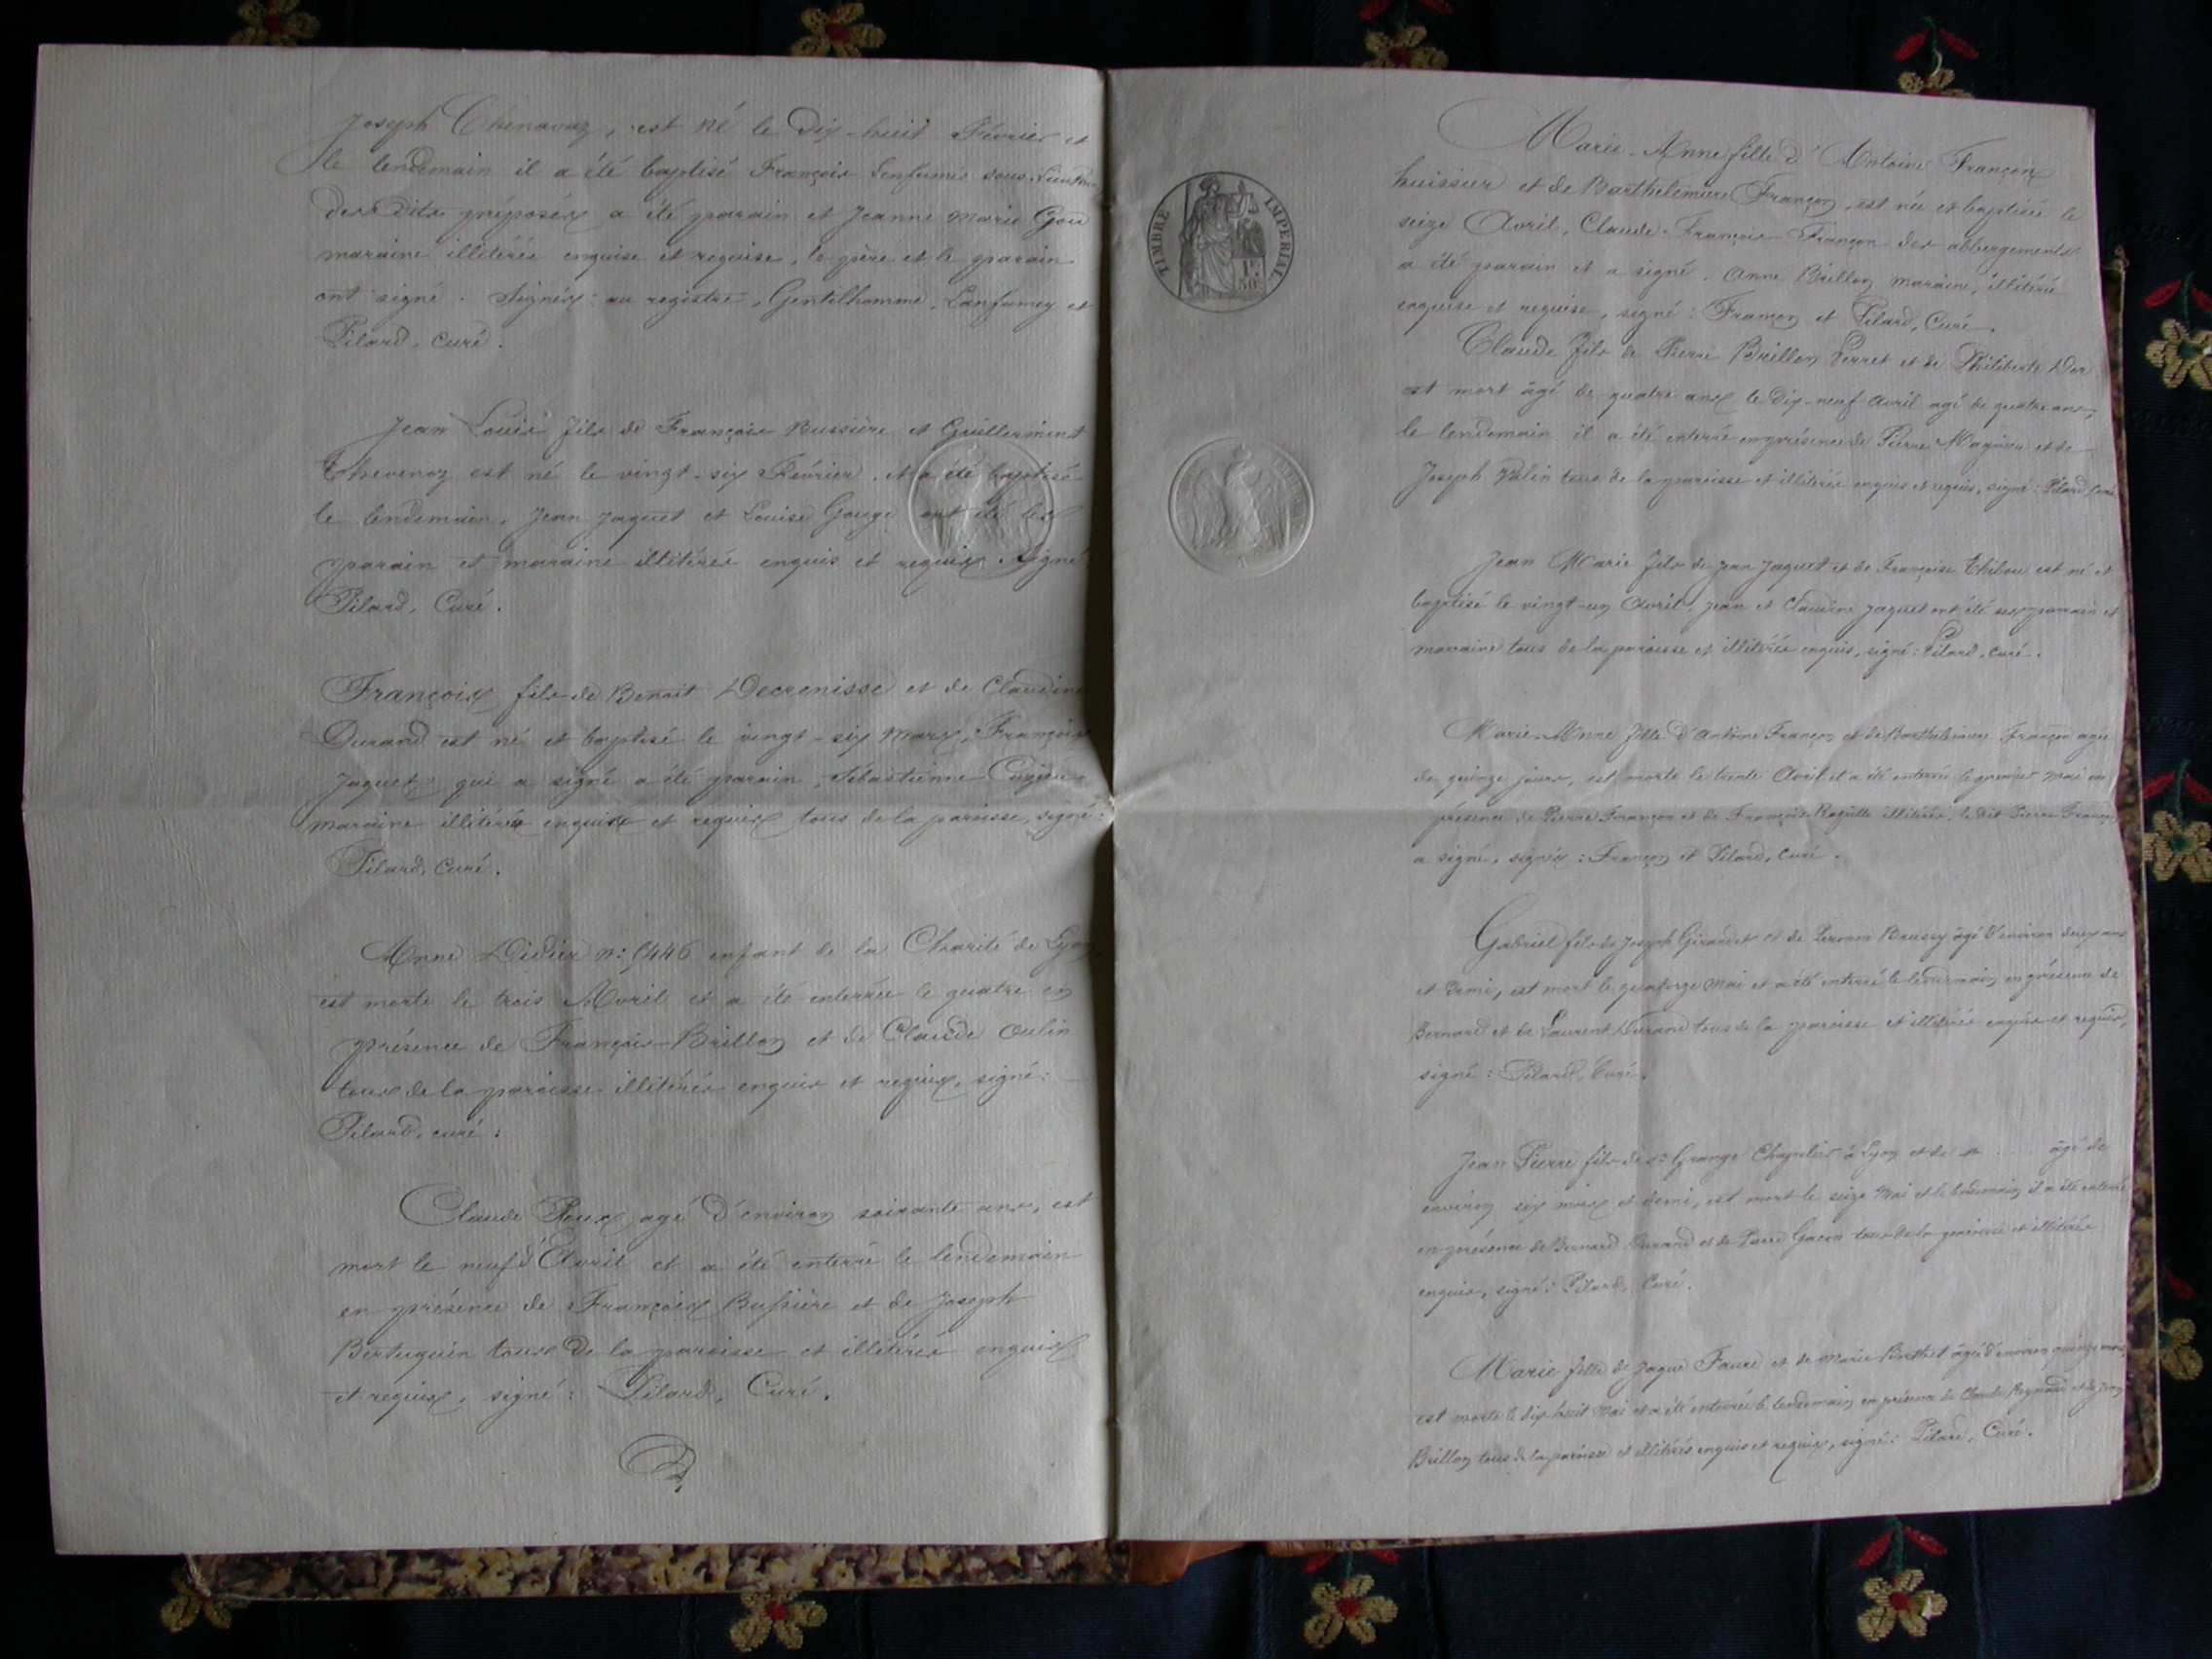 Joseph Chenavaz, est né le dix-huit Février et
le lendemain il a été baptisé François Lenfumer sous
desdits préposés a été parain et Jeanne Marie Gou
maraine illitérée enquise et requise, le père et le parain
ont signé. Signés: au registre, Gentilhomme, Lanfumey et
Pilard, curé.
Jean Louis fils de François Bussière et Guillermine
Thevenoz est né le vingt-six Février, et a été baptisé
le lendemain, Jean Jaquet et Louise Gouge ont été les
parain et maraine illitérés enquis et requis signé
Pilard, Curé.
François fils de Benoit Decrenisse et de Claudine
Durand est né et baptisé le vingt-six Mars, François
Jaquet qui a signé a été parain, Sébastienne
maraine illitérée enquise et requis tous de la paroisse, signé:
Pilard, curé.
Anne Didier n: 5446 enfant de la Charité de Lyon
est morte le trois Avril et a été enterrée le quatre en
présence de François Brillon et de Claude Oulin
tous de la paroisse illitérés enquis et requis, signé:
Pilard, curé:
Claude Roux agé d'environ soixante ans, est
mort le neuf d'Avril et a été enterré le lendemain
en présence de François Bussière et de Joseph
Bertuquin tous de la paroisse et illitérés enquis
et requis, signé: Pilard, Curé.
TIMBRE IMPERIAL
1F
50C
Marie-Anne fille d'Antoine Françon
huissier et de Barthelemie Françon, est née et baptisée le
seize Avril, Claude-François Françon des abbergements
a été parain et a signé. Anne Brillon maraine, illitérée
enquise et requise, signé: Françon et Pilard, Curé.
Claude fils de Pierre Brillon Perret et de Philiberte Dor
est mort âgé de quatre ans le dix-neuf avril agé de quatre ans,
le lendemain il a été enterré en présence de Pierre Magnin et de
Joseph tous de la paroisse et illitérés enquis et requis, signé: Pilard Curé
Jean Marie fils de Jean Jaquet et de Françoise Thibou est né et
baptisé le vingt-un Avril, Jean et Claudine Jaquet ont été ses parain et
maraine tous de la paroisse et illitérés enquis, signé: Pilard, curé.
Marie-Anne fille d'Antoine Françon et de Barthelemie Françon agée
de quinze jours, est morte le trente Avril et a été enterrée le premier Mai en
présence de Pierre Françon et de François illitérés, le dit Pierre Françon
a signé, signés: Françon et Pilard, curé.
Gabriel fils de Joseph Girardet et de Peronne Brussy âgé d'environ deux ans
et demi, est mort le quatorze Mai et a été enterré le lendemain en présence de
Bernard et de Laurent Durand tous de la paroisse et illitérés enquis et requis,
signé: Pilard, Curé.
Jean Pierre fils de Sr Grange Chapelier à Lyon et de n .... âgé de
environ six mois et demi, est mort le seize Mai et le lendemain il a été enterré
en présence de Bernard Durand et de Pierre Gacon tous de la paroisse et illitérés
enquis, signé: Pilard, Curé.
Marie fille de Jaque Faure et de Marie Brethet âgée d'environ quinze mois
est morte le dix-huit Mai et a été enterrée le lendemain en présence de Claude Reynaud et de Jean
Brillon tous de la paroisse et illitérés enquis et requis, signé: Pilard, Curé.